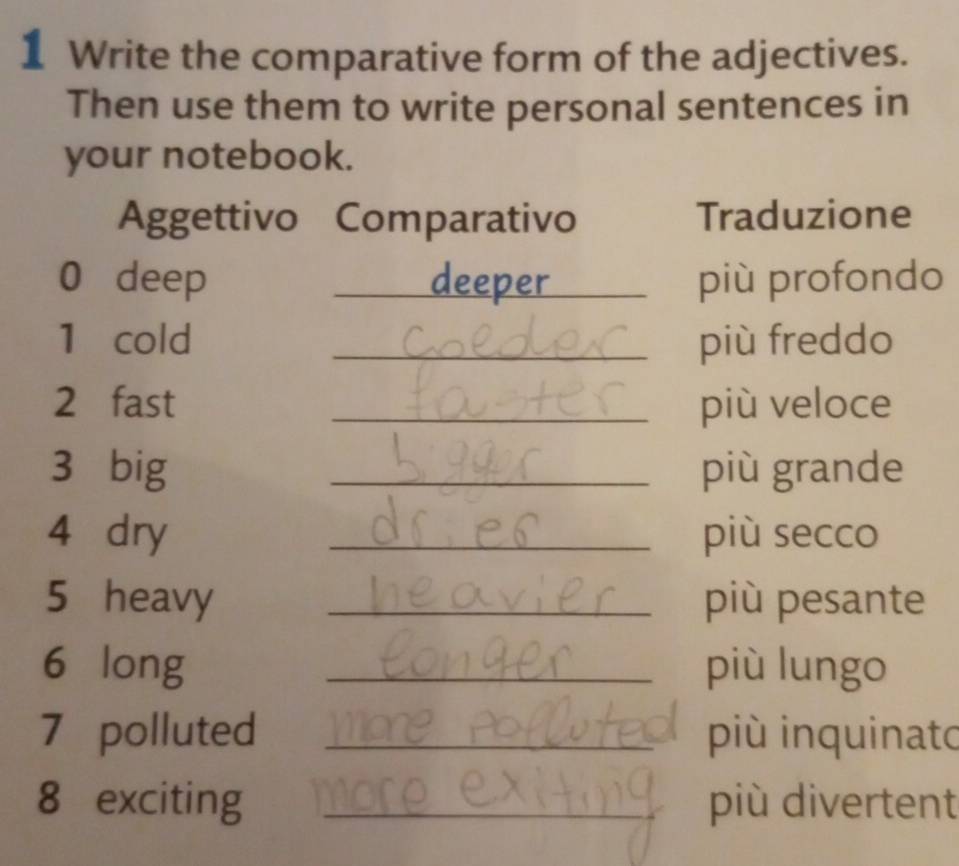 1 Write the comparative form of the adjectives.
Then use them to write personal sentences in
your notebook.
Aggettivo Comparativo Traduzione
0 deep deeper più profondo
1 cold colder più freddo
2 fast faster più veloce
3 big bigger più grande
4 dry drier più secco
5 heavy heavier più pesante
6 long longer più lungo
7 polluted more polluted più inquinato
8 exciting more exiting più divertent